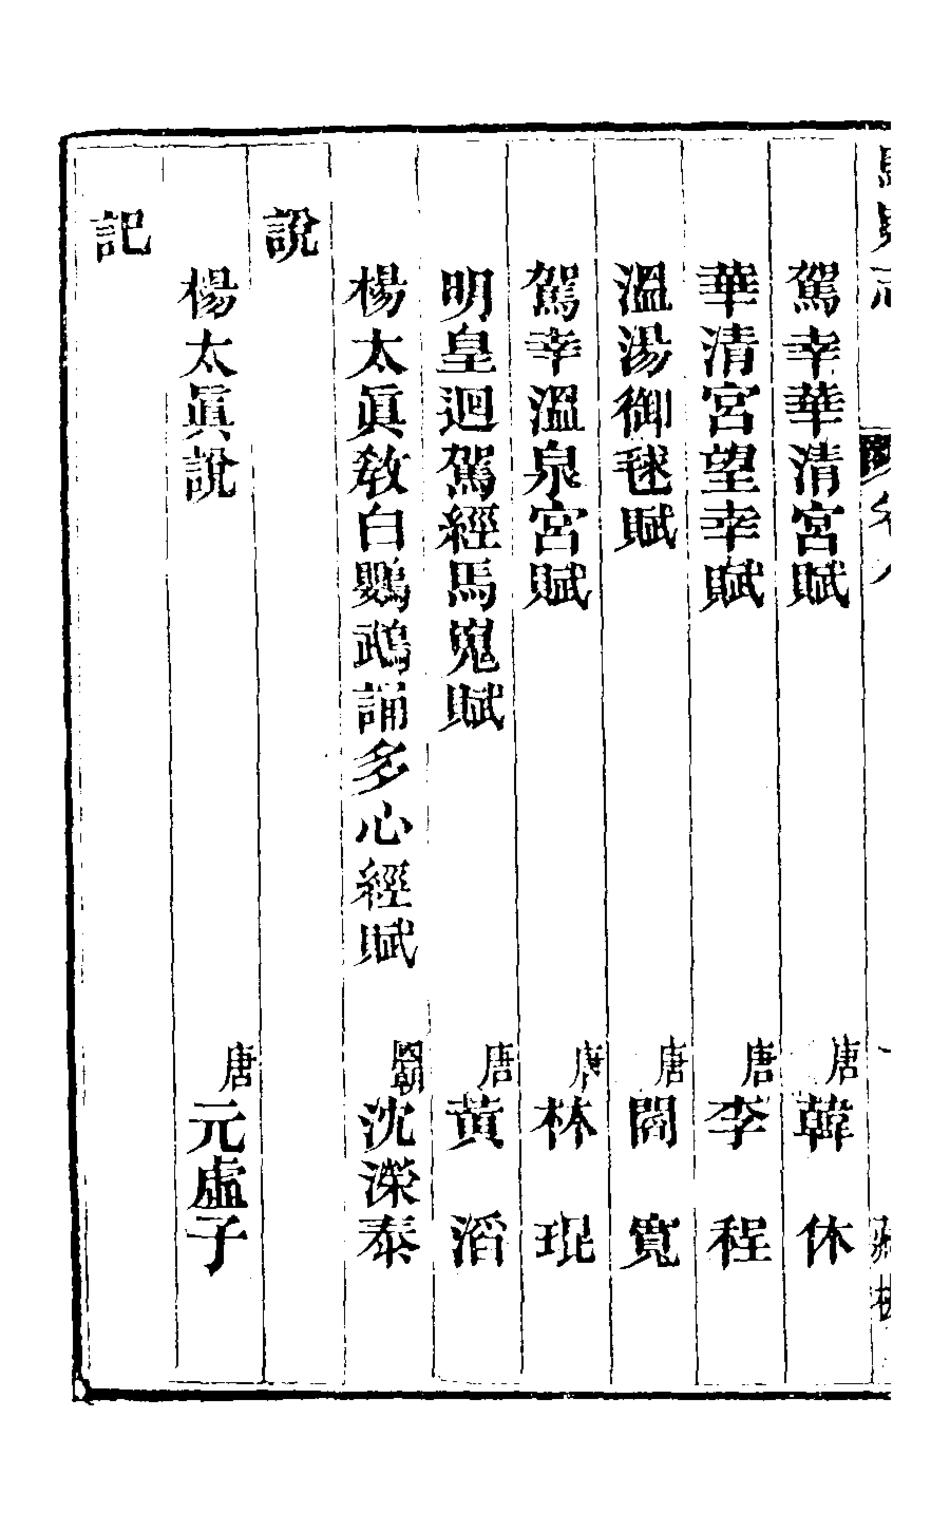 駕幸華清宮賦 唐 韓休
華清宮望幸賦 唐 李程
溫湯御毬賦 唐 閻寬
駕幸溫泉宮賦 唐 林琨
明皇迴駕經馬嵬賦 唐 黃滔
楊太眞敎白鸚鵡誦多心經賦 國朝 沈濚泰
說
楊太眞說 唐 元虛子
記